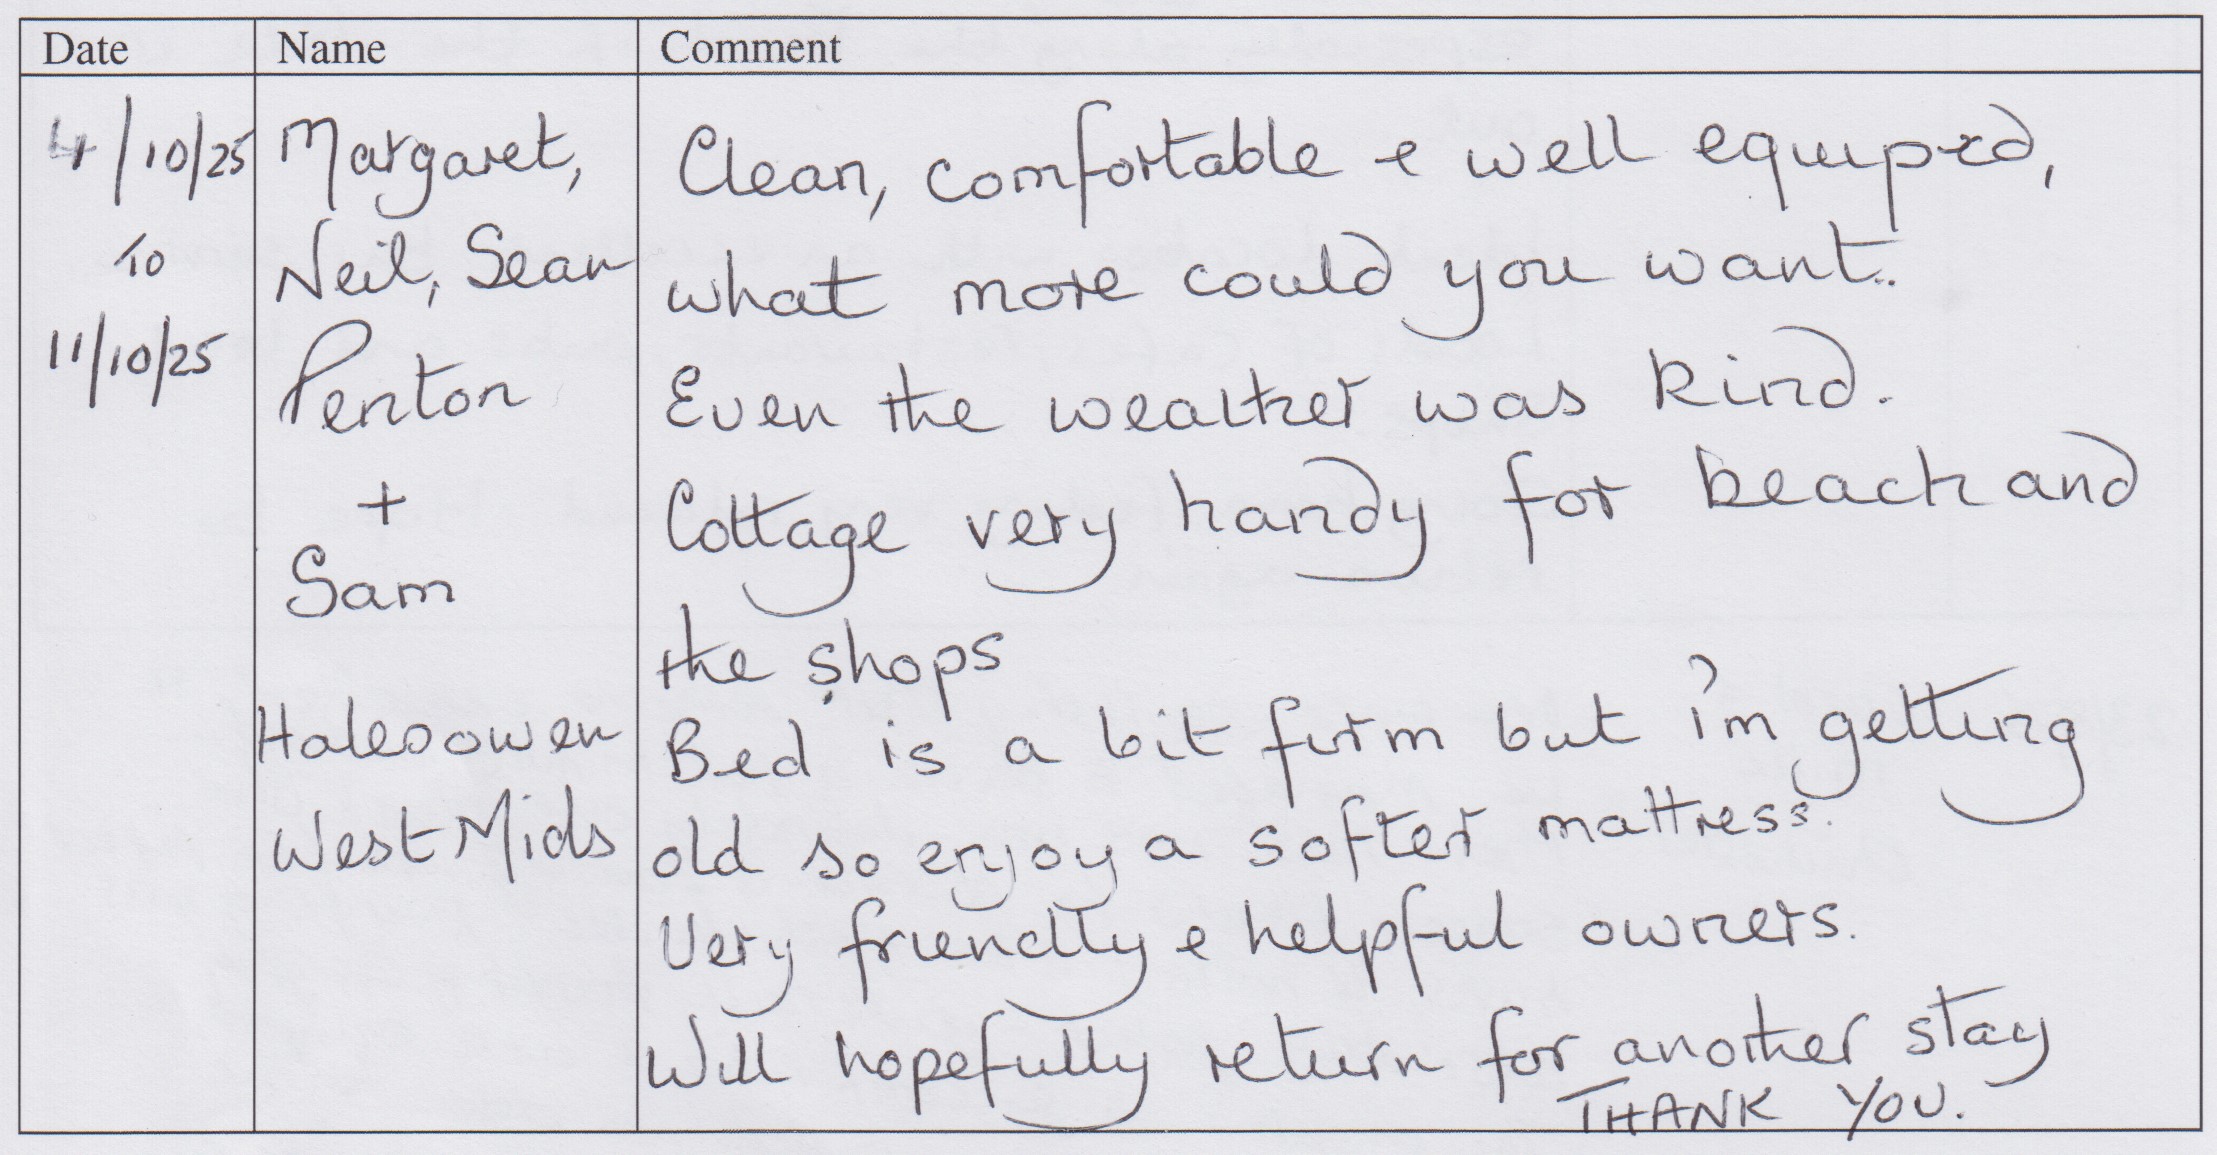 Date Name Comment
4/10/25 Margaret, Clean, comfortable & well equiped,
To Neil, Sean what more could you want..
11/10/25 Penton Even the weather was kind.
+ Cottage very handy for beach and
Sam the shops
Halesowen Bed is a bit firm but i'm getting
West Mids old so enjoy a softer mattress.
Very friendly & helpful owners.
Will hopefully return for another stay
THANK YOU.